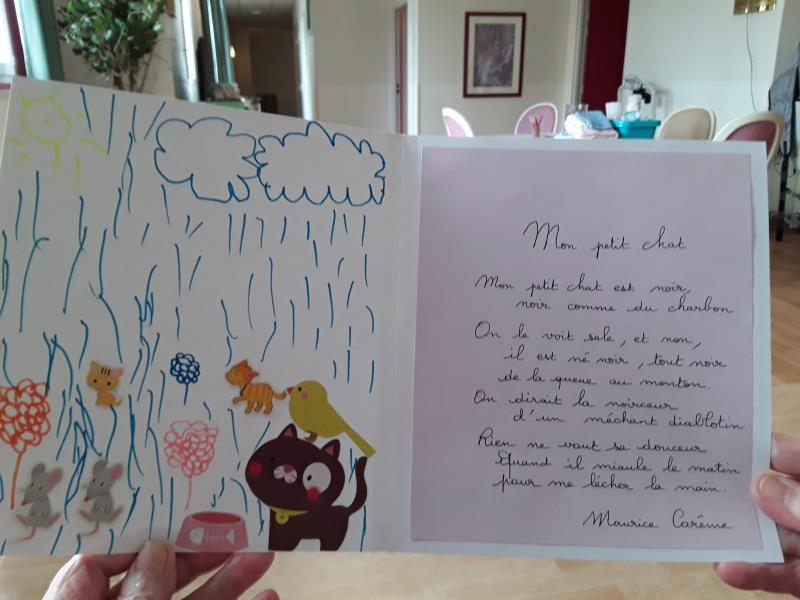 Mon petit chat
Mon petit chat est noir,
noir comme du charbon
On le voit sale, et non,
il est né noir, tout noir
de la queue au menton.
On dirait la noirceur
d'un méchant diablotin
Rien ne vaut sa douceur
Quand il miaule le matin
pour me lécher la main.
Maurice Carême